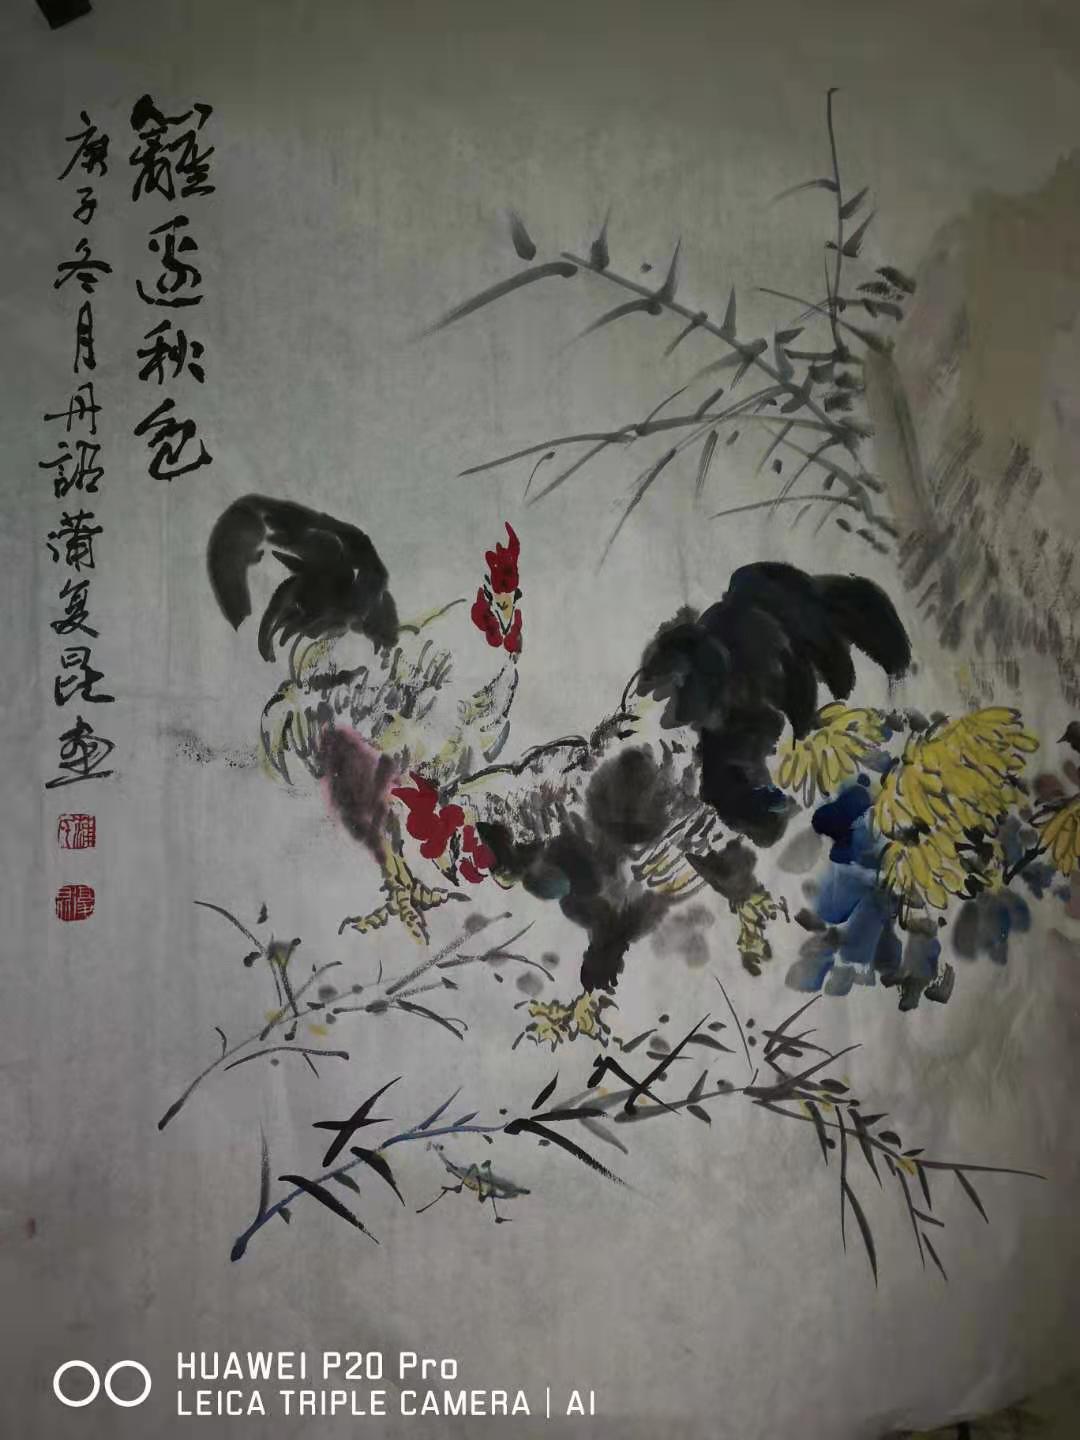 籬邊秋色
庚子冬月丹詔蒲复昆画
HUAWEI P20 Pro
LEICA TRIPLE CAMERA | AI